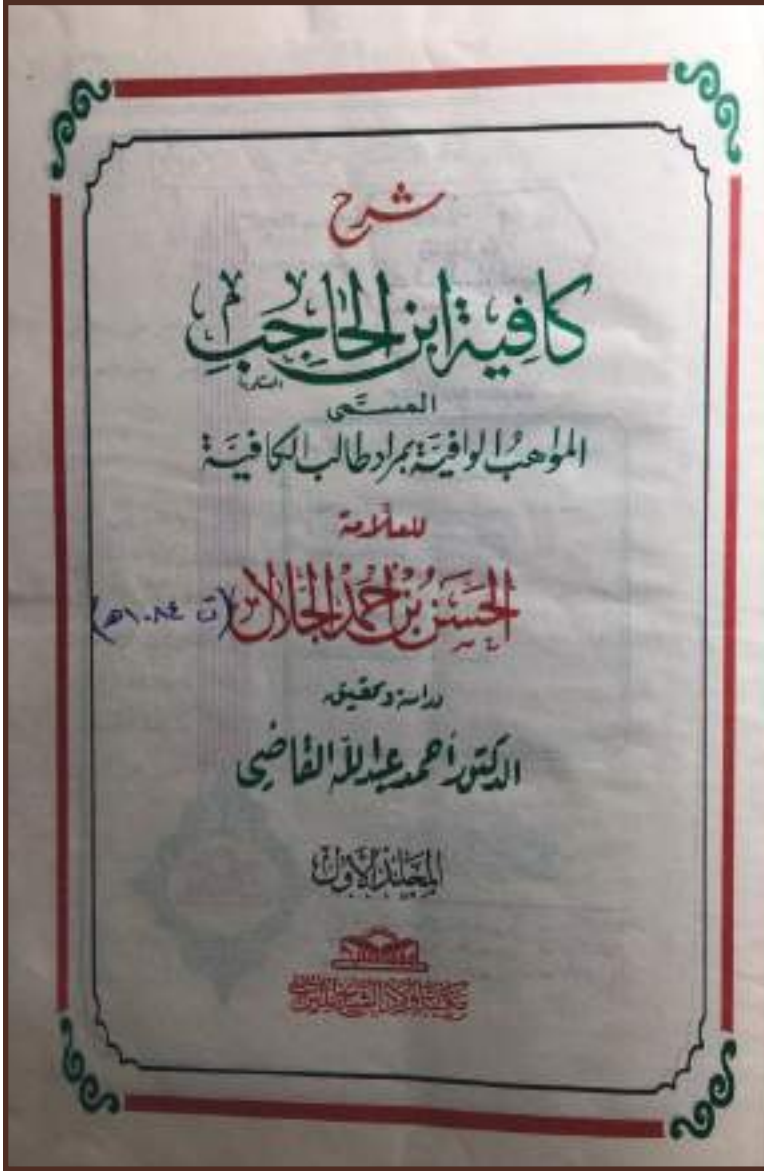 شرح
كافية ابن الحاجب
المسمى
المواهب الوافية بمراد طالب الكافية
للعلامة
الحسن بن أحمد الجلال (ت ١٠٨٤هـ)
دراسة وتحقيق
الدكتور أحمد عبد الله القاضي
المجلد الأول